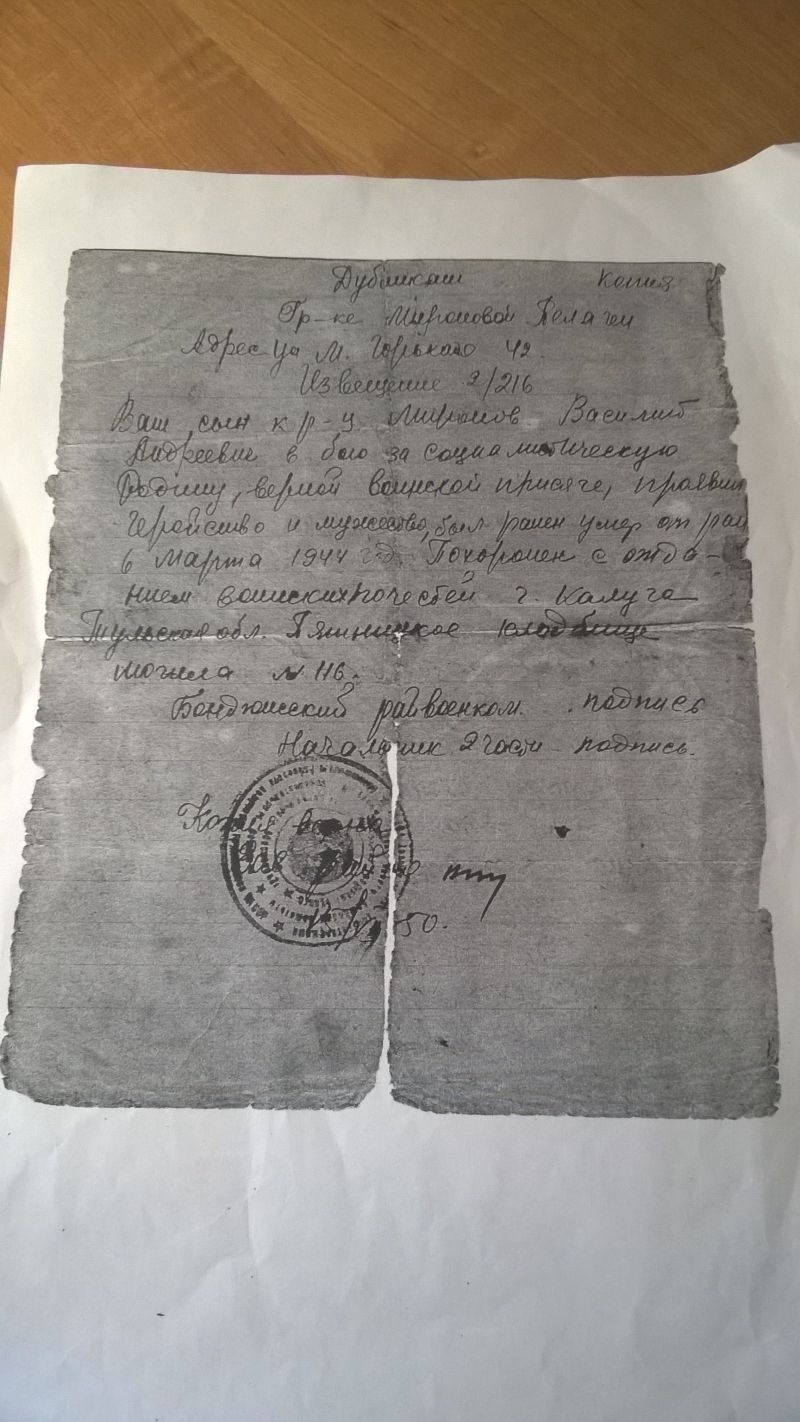 Дубликат Копия
Гр-ке Мироновой Пелагеи
Адрес ул М. Горького 42.
Извещение 2/216
Ваш сын кр-ц Миронов Василий
Андреевич в бою за социалистическую
Родину, верной воинской присяге, проявил
геройство и мужество, был ранен умер от ран
6 марта 1944 год. Похоронен с отда-
нием воинских почестей г. Калуга
Тульская обл. Пятницкое кладбище
могила N 116.
райвоенком. подпись
Начальник 2 части подпись.
Копия верна
Зав
50.